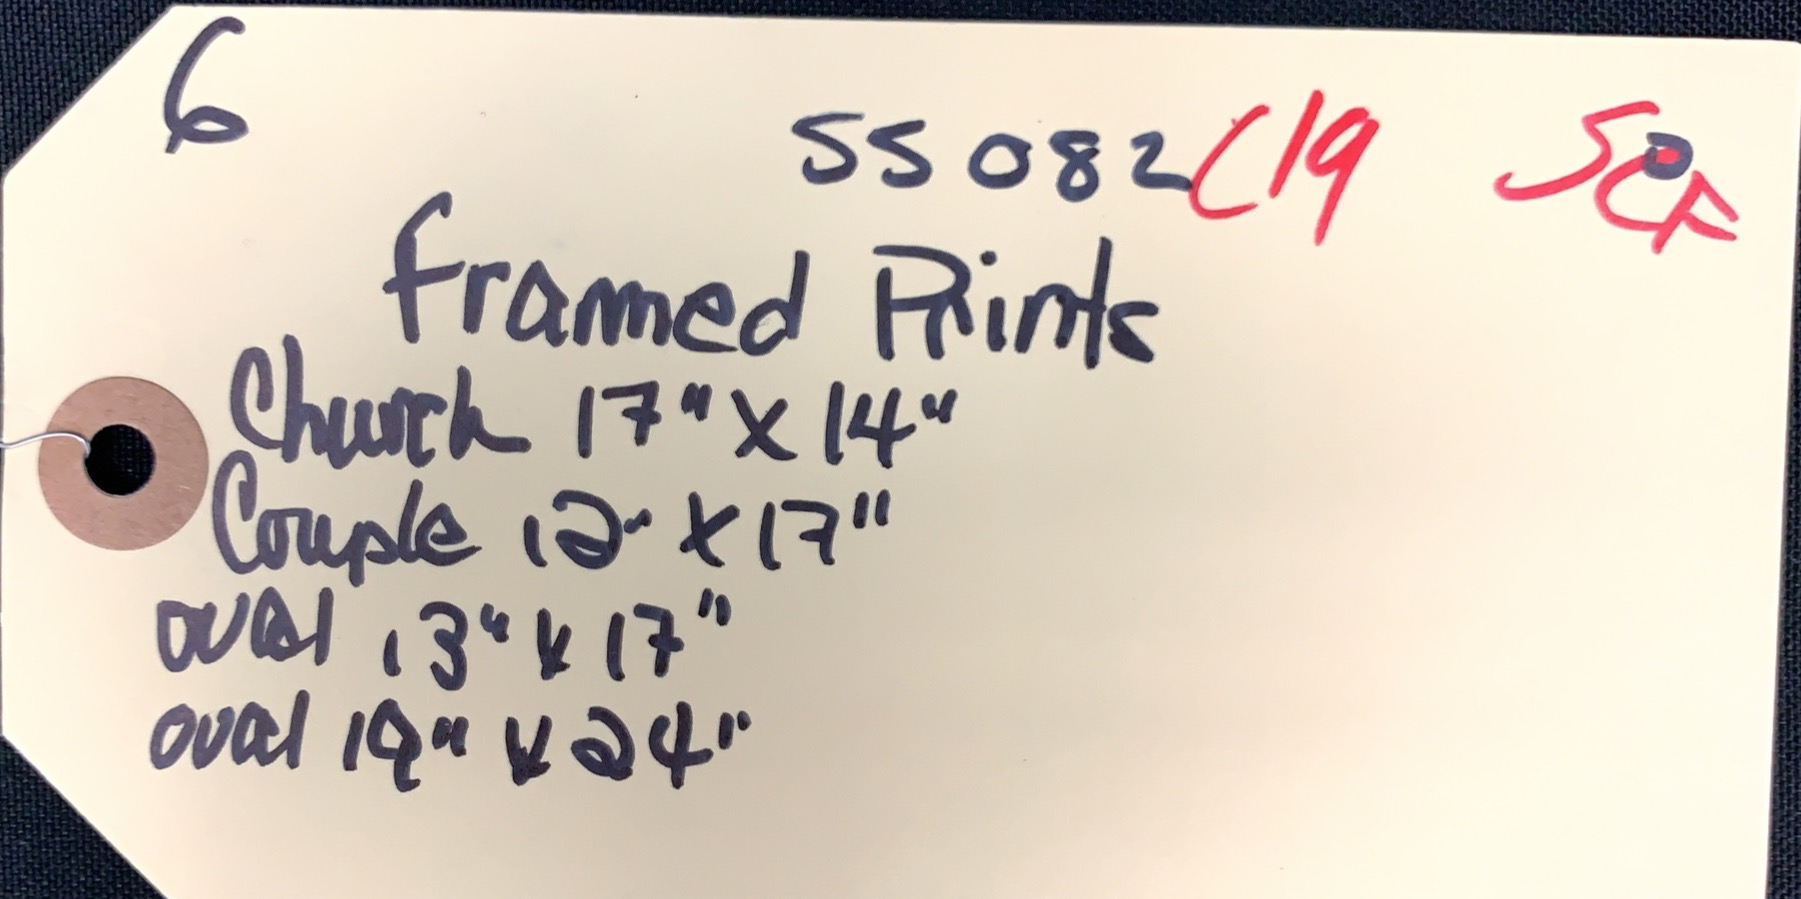 6
SS082 C19 SCF
Framed Prints
Church 17" X 14"
Couple 12" X 17"
oval 13" X 17"
oval 19" X 24"